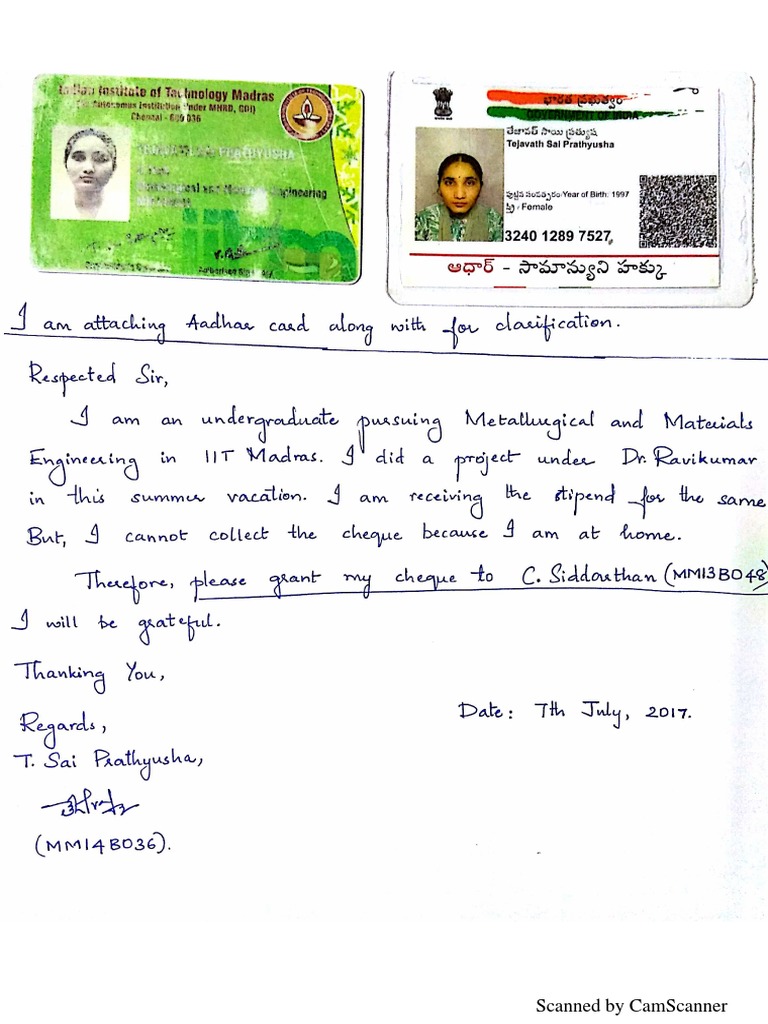 Indian Institute of Technology Madras
(An Autonomous Institution Under MHRD, GOI)
Chennai - 600 036
PRATHYUSHA
Metallurgical and Materials Engineering
భారత ప్రభుత్వం
GOVERNMENT OF INDIA
తేజావత్ సాయి ప్రత్యుష
Tejavath Sai Prathyusha
పుట్టిన సంవత్సరం/Year of Birth: 1997
స్త్రీ / Female
3240 1289 7527
ఆధార్ - సామాన్యుని హక్కు
I am attaching Aadhar card along with for clarification.
Respected Sir,
I am an undergraduate pursuing Metallurgical and Materials
Engineering in IIT Madras. I did a project under Dr. Ravikumar
in this summer vacation. I am receiving the stipend for the same
But, I cannot collect the cheque because I am at home.
Therefore, please grant my cheque to C. Siddarthan (MM13B048)
I will be grateful.
Thanking You,
Regards,
Date: 7th July, 2017.
T. Sai Prathyusha,
(MM14B036).
Scanned by CamScanner